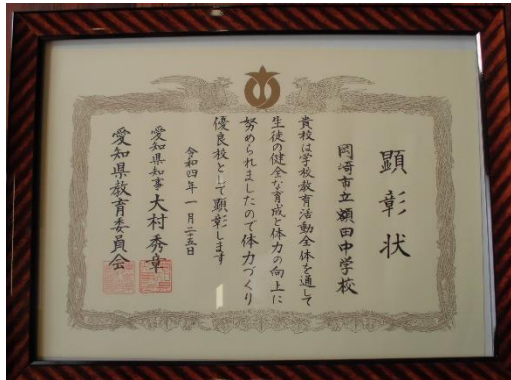 顕彰状
岡崎市立額田中学校
貴校は学校教育活動全体を通して
生徒の健全な育成と体力の向上に
努められましたので体力づくり
優良校として顕彰します
令和四年一月二十五日
愛知県知事 大村秀章
愛知県教育委員会